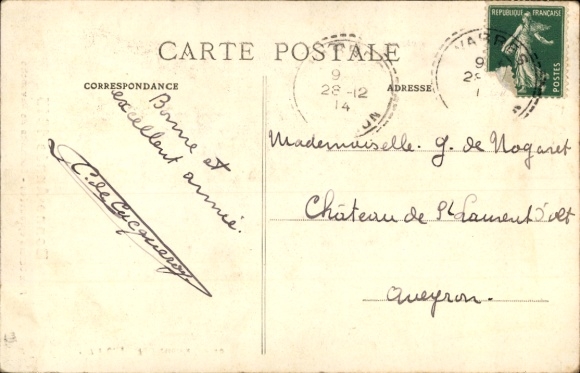 CARTE POSTALE
CORRESPONDANCE
ADRESSE
REPUBLIQUE FRANÇAISE
POSTES
9
28-12
14
ON
VABRES
9
28
1
Bonne et
excellent année.
C. de Cucqueron
Mademoiselle. G. de Nogaret
Château de St Laurent d'olt
Aveyron.